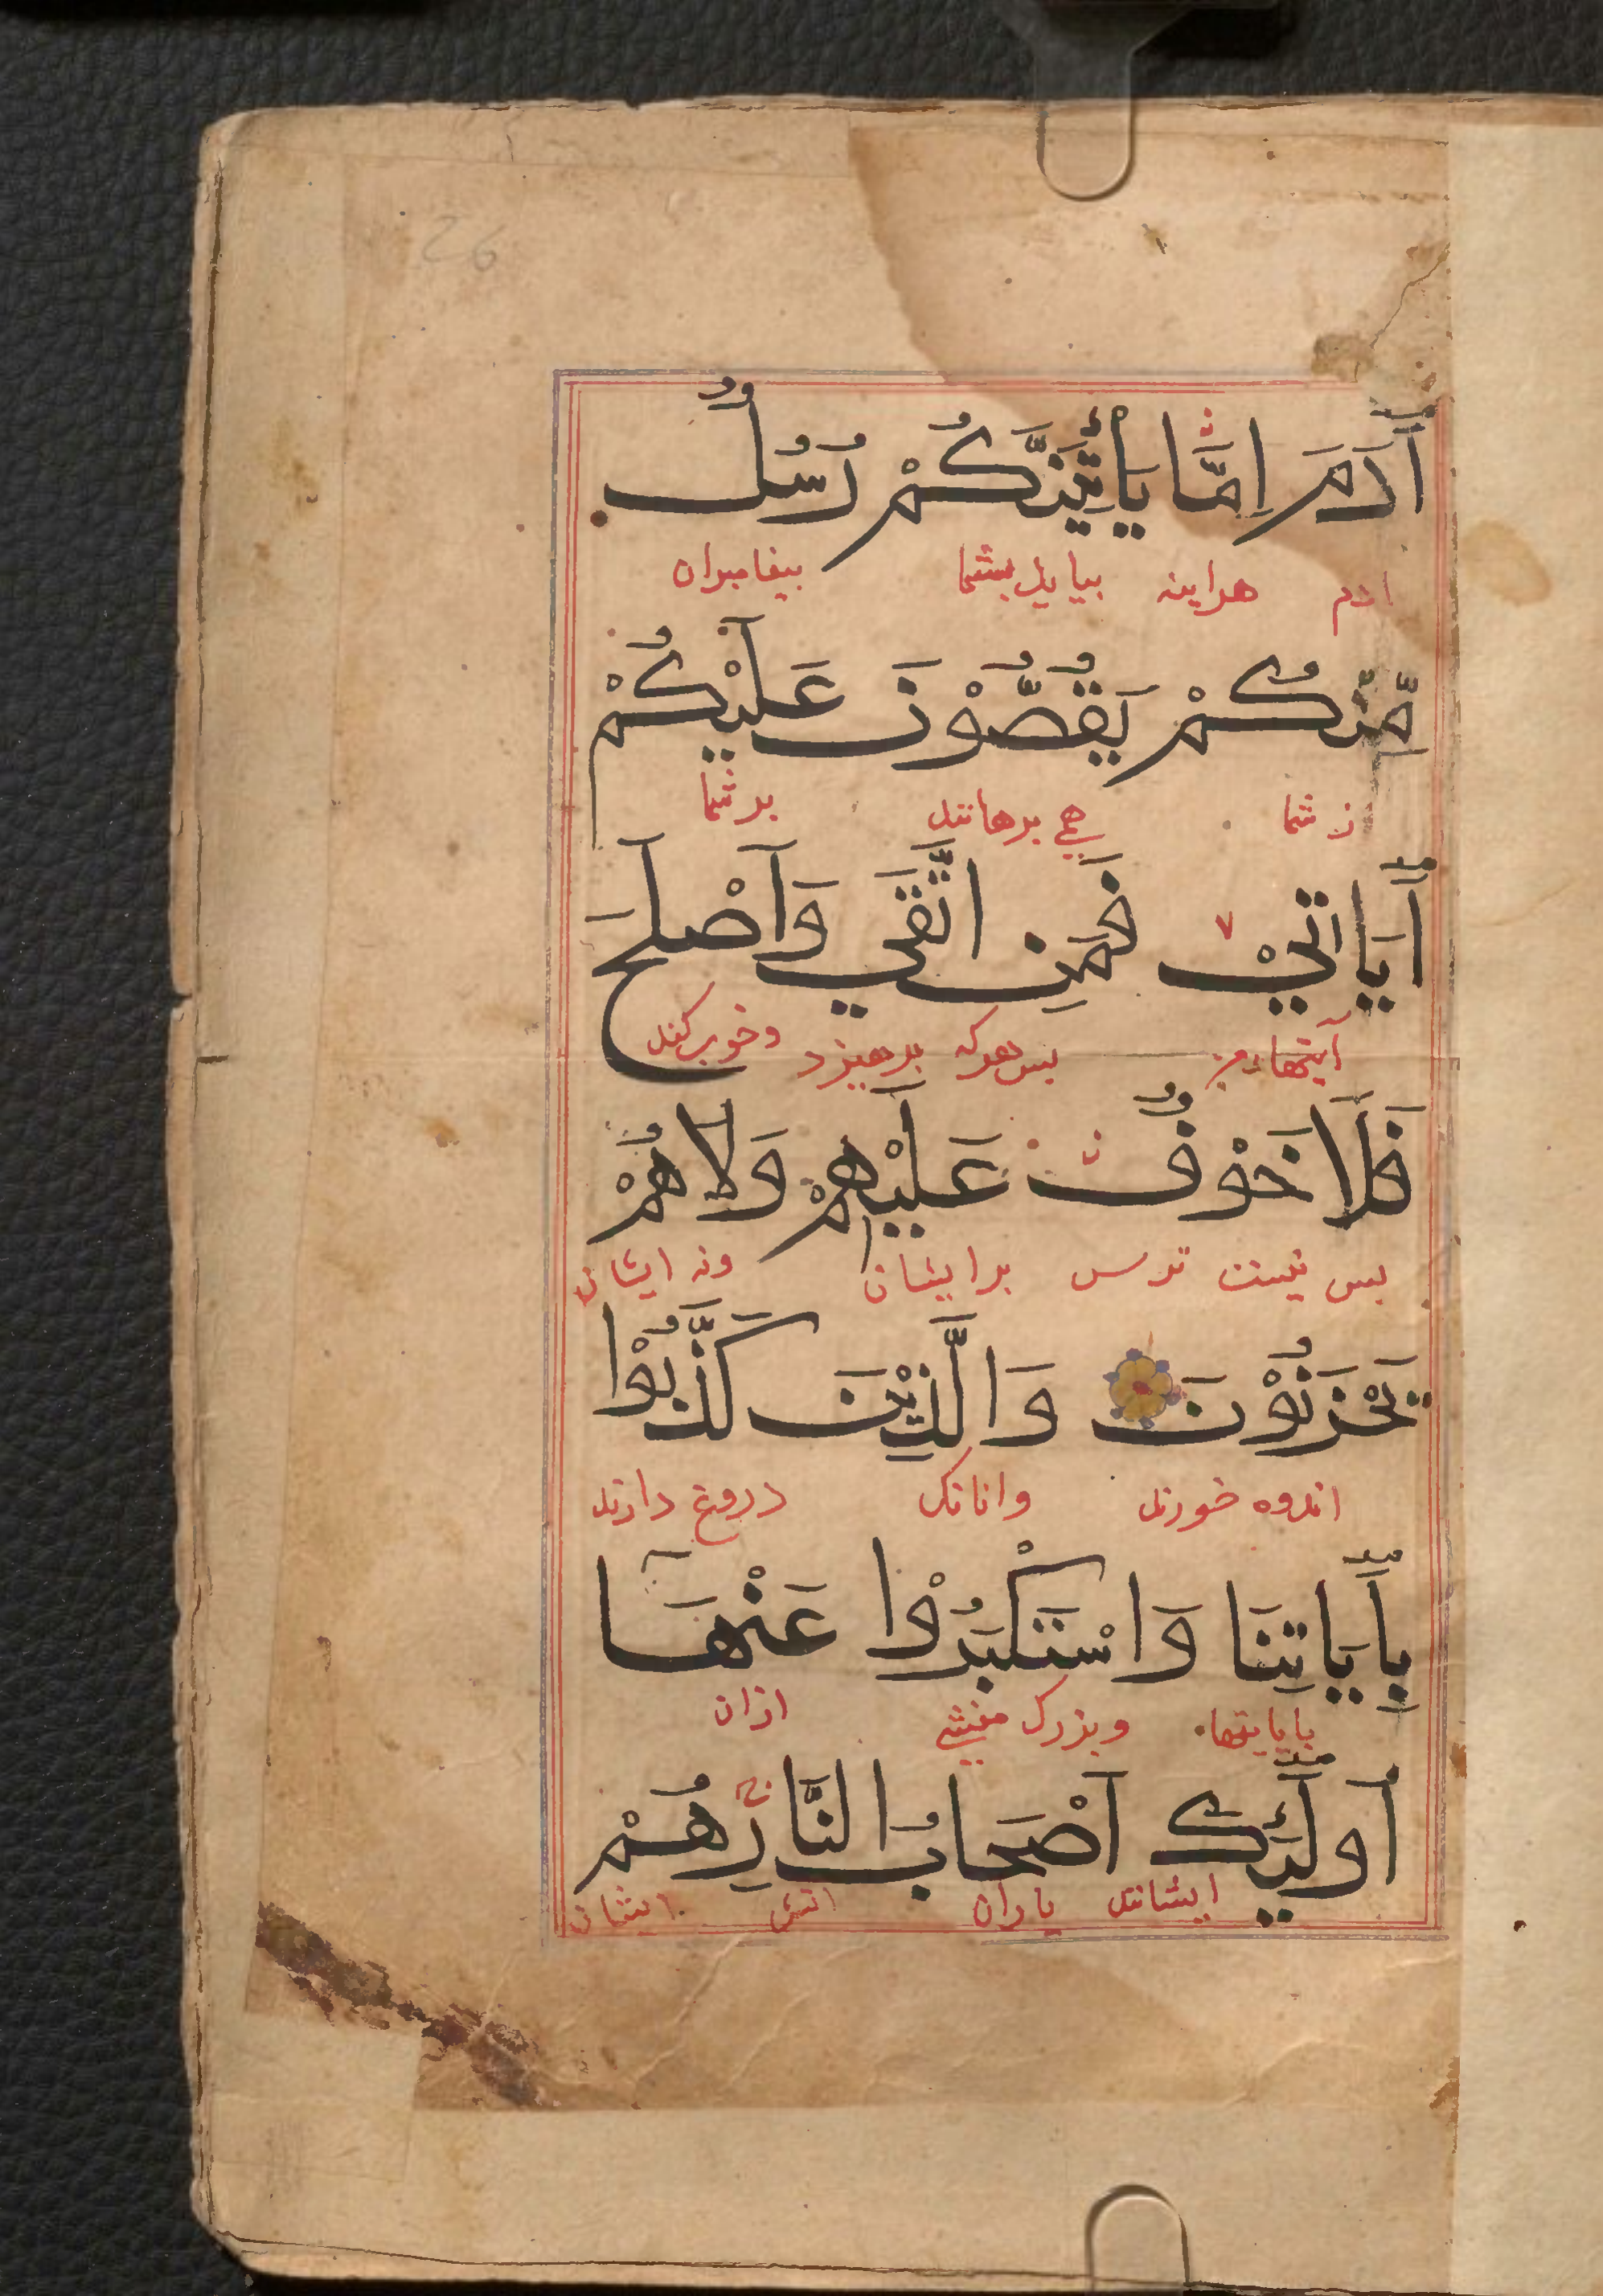 26
اٰدَمَ اِمَّا يَأْتِيَنَّكُمْ رُسُلٌ
ادم هراینه بیاید بشما بیغامبران
مِّنْكُمْ يَقُصُّوْنَ عَلَيْكُمْ
ز شما همی برخوانند بر شما
اٰيَاتِيْ فَمَنِ اتَّقٰي وَاَصْلَحَ
آیتها من بس هرکه برهیزد وخوب کند
فَلَا خَوْفٌ عَلَيْهِمْ وَلَا هُمْ
بس نیست ترس بر ایشان ونه ایشان
يَحْزَنُوْنَ وَالَّذِيْنَ كَذَّبُوْا
اندوه خورند وانانک دروغ دارند
بِاٰيَاتِنَا وَاسْتَكْبَرُوْا عَنْهَا
بایایتهاء وبزرک منشی ازان
اُولٰٓئِكَ اَصْحَابُ النَّارِ هُمْ
ایشانند یاران اتش ایشان